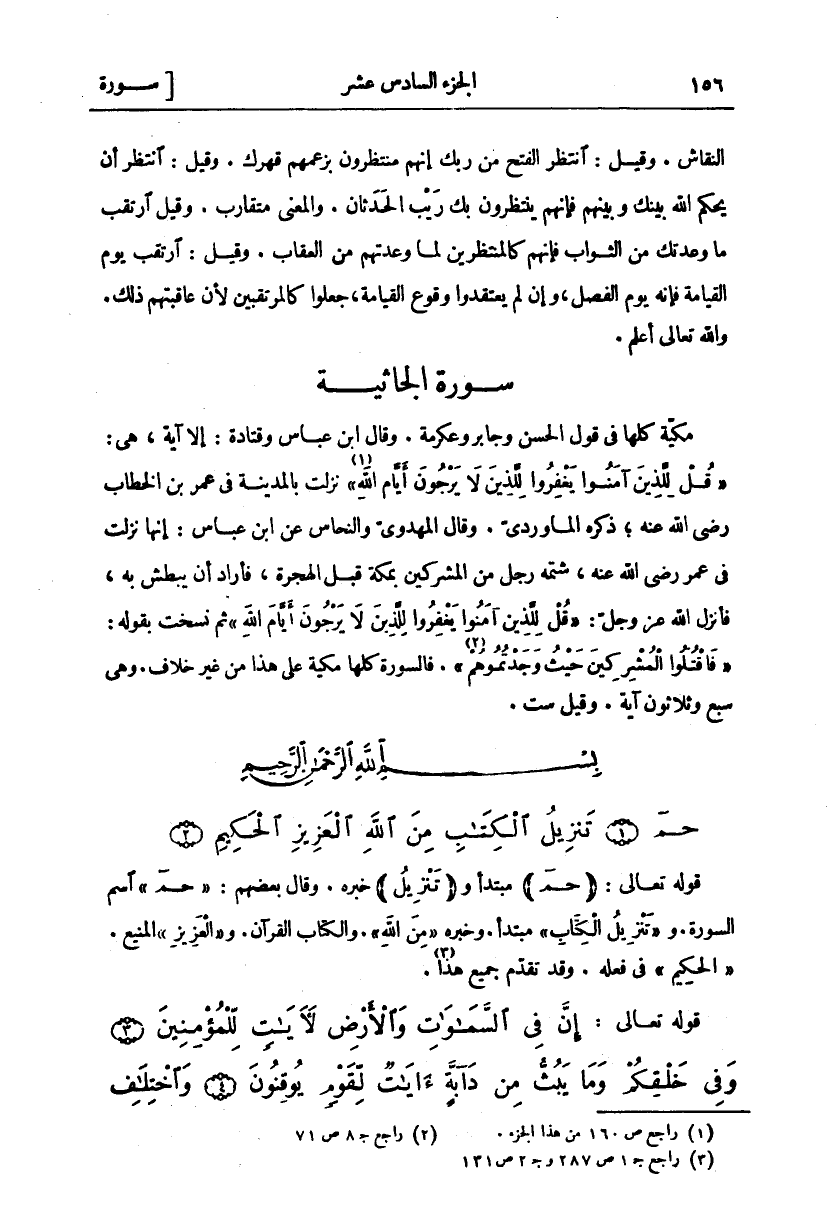 ١٥٦ الجزء السادس عشر [ ســورة
النقاش . وقيــل : ٱنتظر الفتح من ربك إنهم منتظرون بزعمهم قهرك . وقيل : ٱنتظر أن
يحكم الله بينك وبينهم فإنهم ينتظرون بك رَيْب الحَدَثان . والمعنى متقارب . وقيل ٱرتقب
ما وعدتك من الثــواب فإنهم كالمنتظرين لمــا وعدتهم من العقاب . وقيــل : ٱرتقب يوم
القيامة فإنه يوم الفصل، وإن لم يعتقدوا وقوع القيامة، جعلوا كالمرتقبين لأن عاقبتهم ذلك.
والله تعالى أعلم .
ســورة الجاثيــــة
مكيّة كلها فى قول الحسن وجابر وعكرمة . وقال ابن عبــاس وقتادة : إلا آية ، هى:
« قُــلْ لِلَّذِينَ آمَنُــوا يَغْفِرُوا لِلَّذِينَ لَا يَرْجُونَ أَيَّامَ اللَّهِ »(١) نزلت بالمدينــة فى عمر بن الخطاب
رضى الله عنه ؛ ذكره المــاوردىّ . وقال المهدوىّ والنحاس عن ابن عبــاس : إنهــا نزلت
فى عمر رضى الله عنه ، شتمه رجل من المشركين بمكة قبــل الهجرة ، فأراد أن يبطش به ،
فأنزل الله عز وجلّ : «قُلْ لِلَّذِينَ آمَنُوا يَغْفِرُوا لِلَّذِينَ لَا يَرْجُونَ أَيَّامَ اللَّهِ » ثم نسخت بقوله :
« فَاقْتُلُوا الْمُشْرِكِينَ حَيْثُ وَجَدْتُمُوهُمْ »(٢) . فالسورة كلها مكية على هذا من غير خلاف. وهى
سبع وثلاثون آية . وقيل ست .
بِسْــــــمِ ٱللَّهِ ٱلرَّحْمَٰنِ ٱلرَّحِيمِ
حمٓ ﴿١﴾ تَنزِيلُ ٱلْكِتَٰبِ مِنَ ٱللَّهِ ٱلْعَزِيزِ ٱلْحَكِيمِ ﴿٢﴾
قوله تعــالى : ﴿ حــمٓ ﴾ مبتدأ و ﴿ تَنْزِيلُ ﴾ خبره . وقال بعضهم : « حــمٓ » ٱسم
السورة. و «تَنْزِيلُ الْكِتَابِ» مبتدأ. وخبره «مِنَ اللَّهِ». والكتاب القرآن. و«الْعَزِيزِ» المنيع .
« الحكيم » فى فعله . وقد تقدّم جميع هذا(٣) .
قوله تعــالى : إِنَّ فِى ٱلسَّمَٰوَٰتِ وَٱلْأَرْضِ لَأٓيَٰتٍ لِّلْمُؤْمِنِينَ ﴿٣﴾
وَفِى خَلْقِكُمْ وَمَا يَبُثُّ مِن دَآبَّةٍ ءَايَٰتٌ لِّقَوْمٍ يُوقِنُونَ ﴿٤﴾ وَٱخْتِلَٰفِ
(١) راجع ص ١٦٠ من هذا الجزء . (٢) راجع ج ٨ ص ٧١
(٣) راجع ج ١ ص ٢٨٧ و ج ٢ ص ١٣١